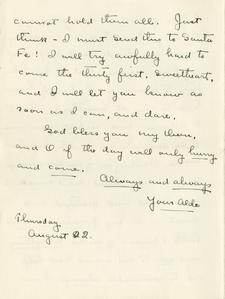 cannot hold them all. Just
think - I must send this to Santa
Fe! I will try awfully hard to
come the thirty first, sweetheart,
and I will let you know as
soon as I can, and dare.
God bless you my own,
and O if the day will only hurry
and come.
Always and always
Your Aldo
Thursday
August 22.